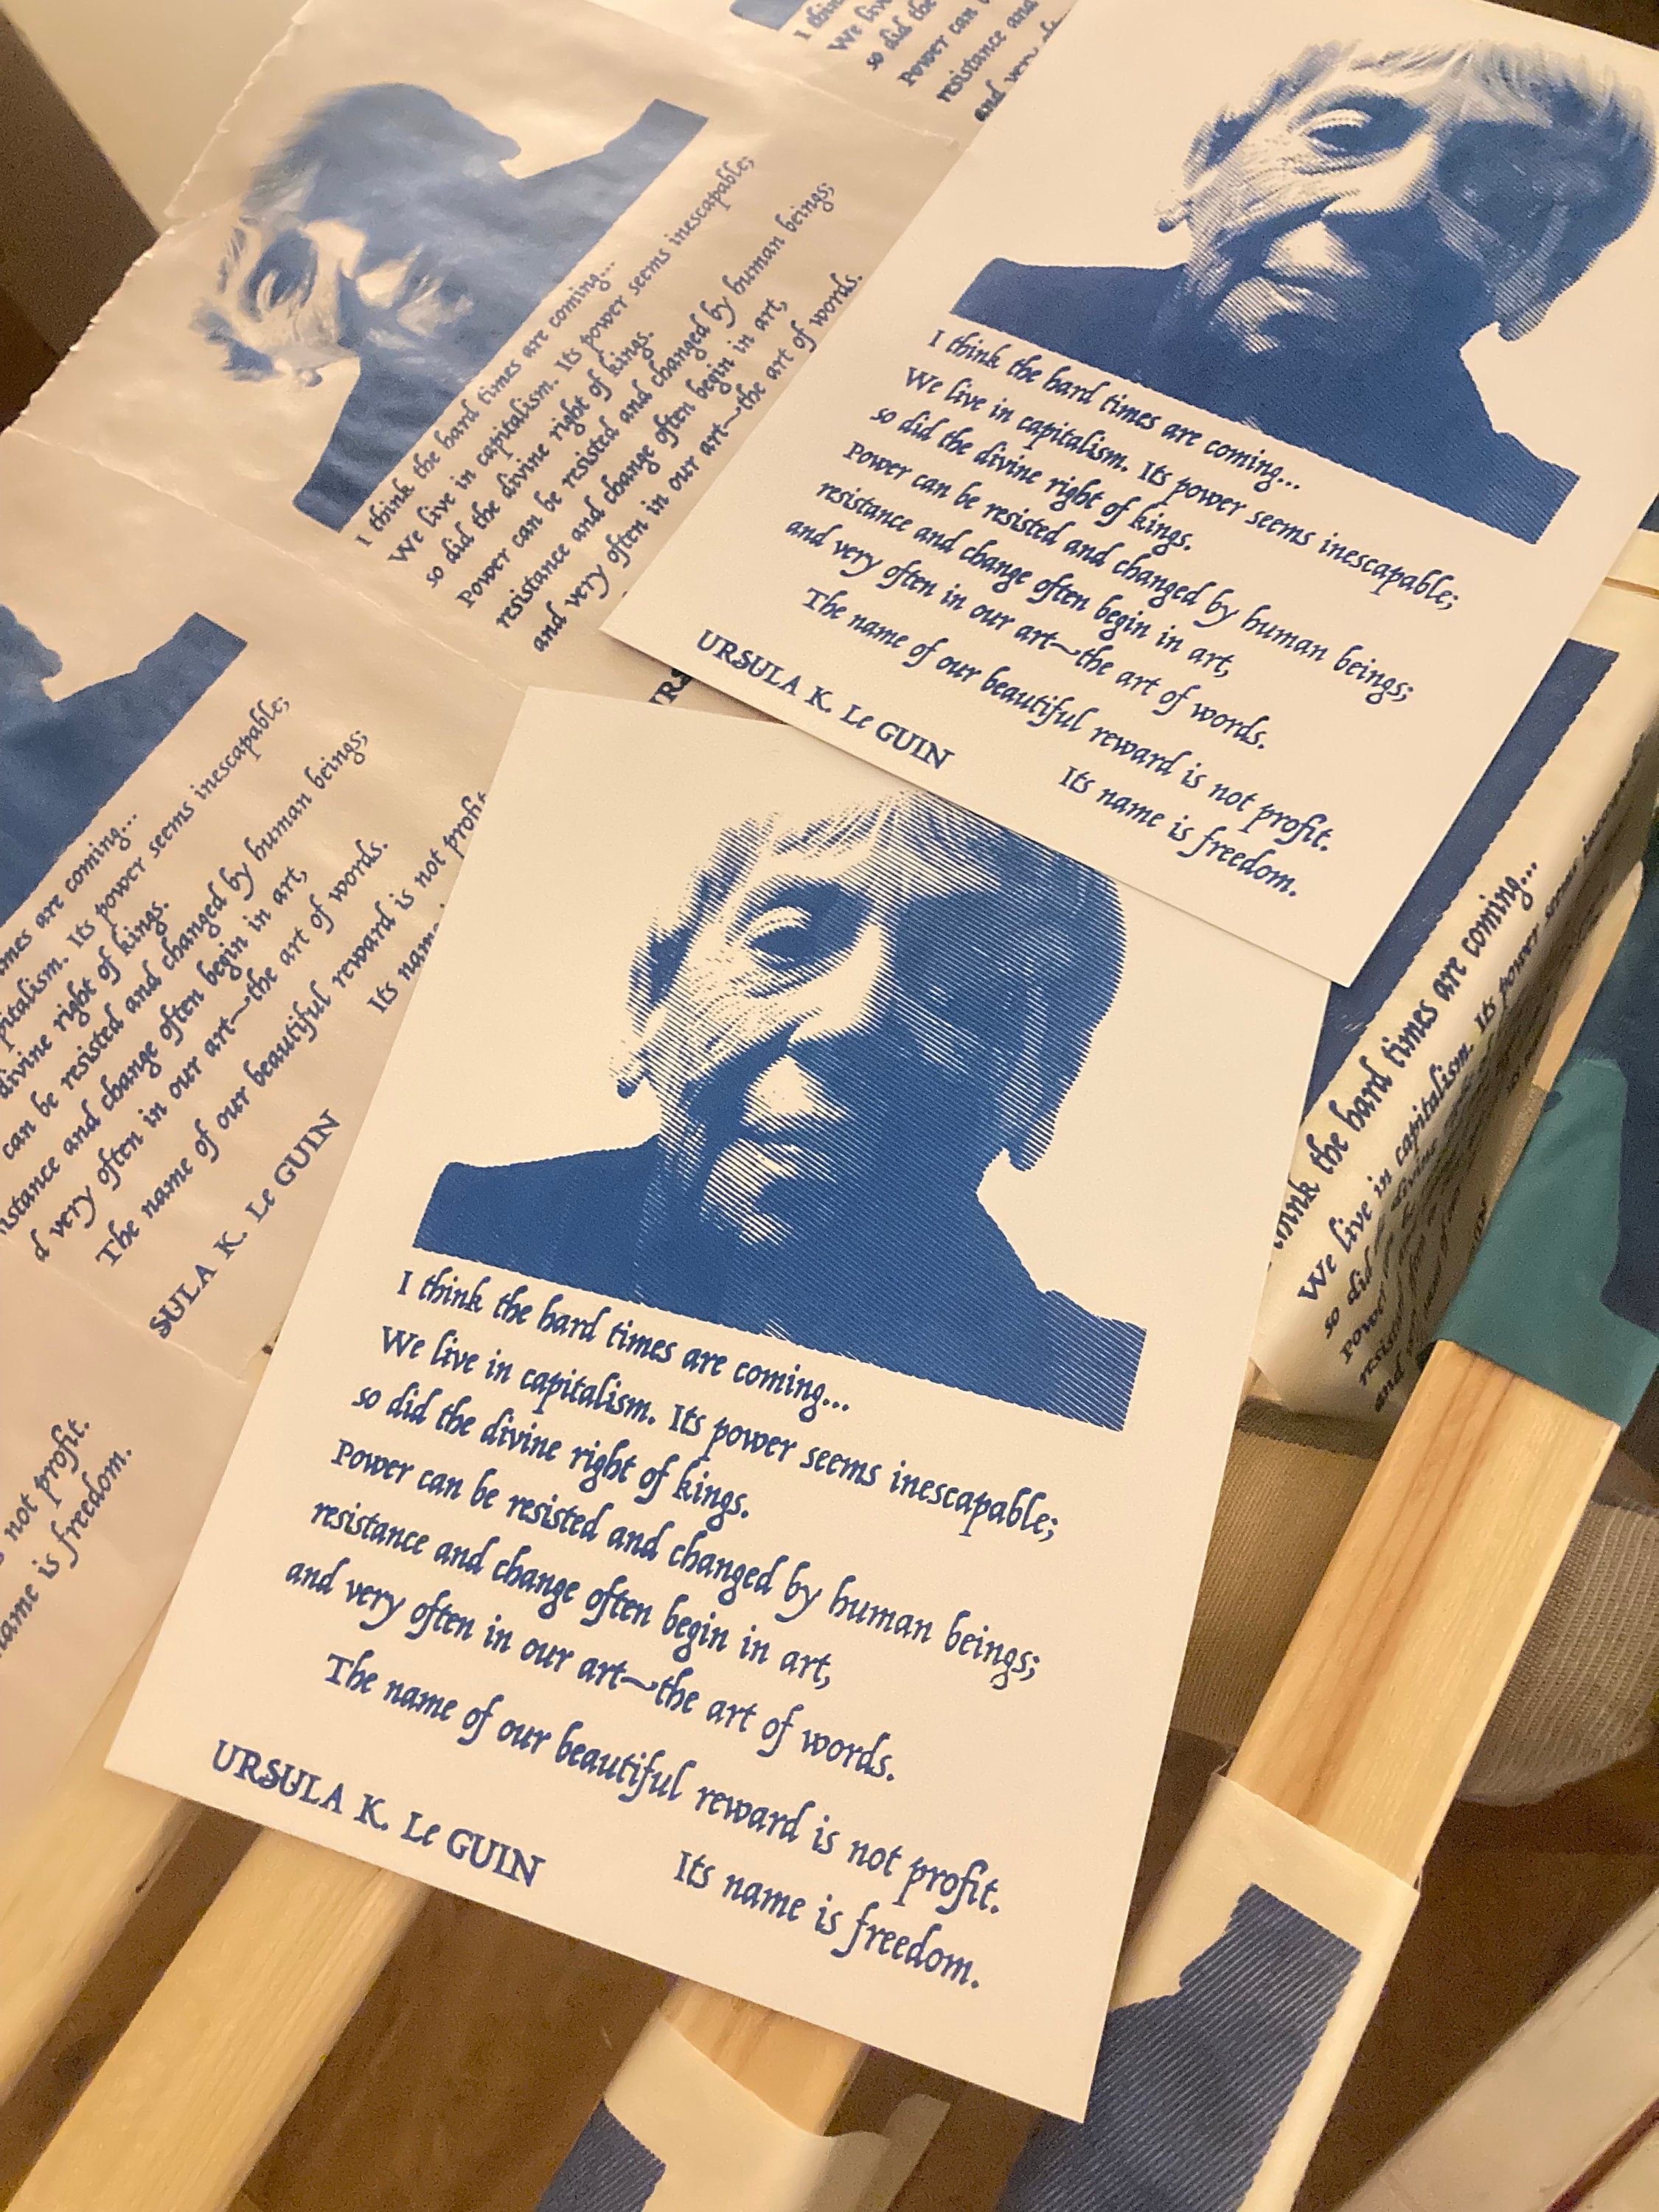 I thin
We live
so did the
Power can
resistance and
and very
I think the hard times are coming...
We live in capitalism. Its power seems inescapable;
so did the divine right of kings.
Power can be resisted and changed by human beings;
resistance and change often begin in art,
and very often in our art—the art of words.
URS
I think the hard times are coming...
We live in capitalism. Its power seems inescapable;
so did the divine right of kings.
Power can be resisted and changed by human beings;
resistance and change often begin in art,
and very often in our art—the art of words.
The name of our beautiful reward is not profit.
Its name is freedom.
URSULA K. Le GUIN
mes are coming...
pitalism. Its power seems inescapable;
divine right of kings.
can be resisted and changed by human beings;
nstance and change often begin in art,
d very often in our art—the art of words.
The name of our beautiful reward is not profit
Its name
SULA K. Le GUIN
not profit.
name is freedom.
I think the hard times are coming...
We live in capitalism. Its power seems inescapable;
so did the divine right of kings.
Power can be resisted and changed by human beings;
resistance and change often begin in art,
and very often in our art—the art of words.
The name of our beautiful reward is not profit.
Its name is freedom.
URSULA K. Le GUIN
hink the hard times are coming...
We live in capitalism. Its power seems
so did
Power
resist
and